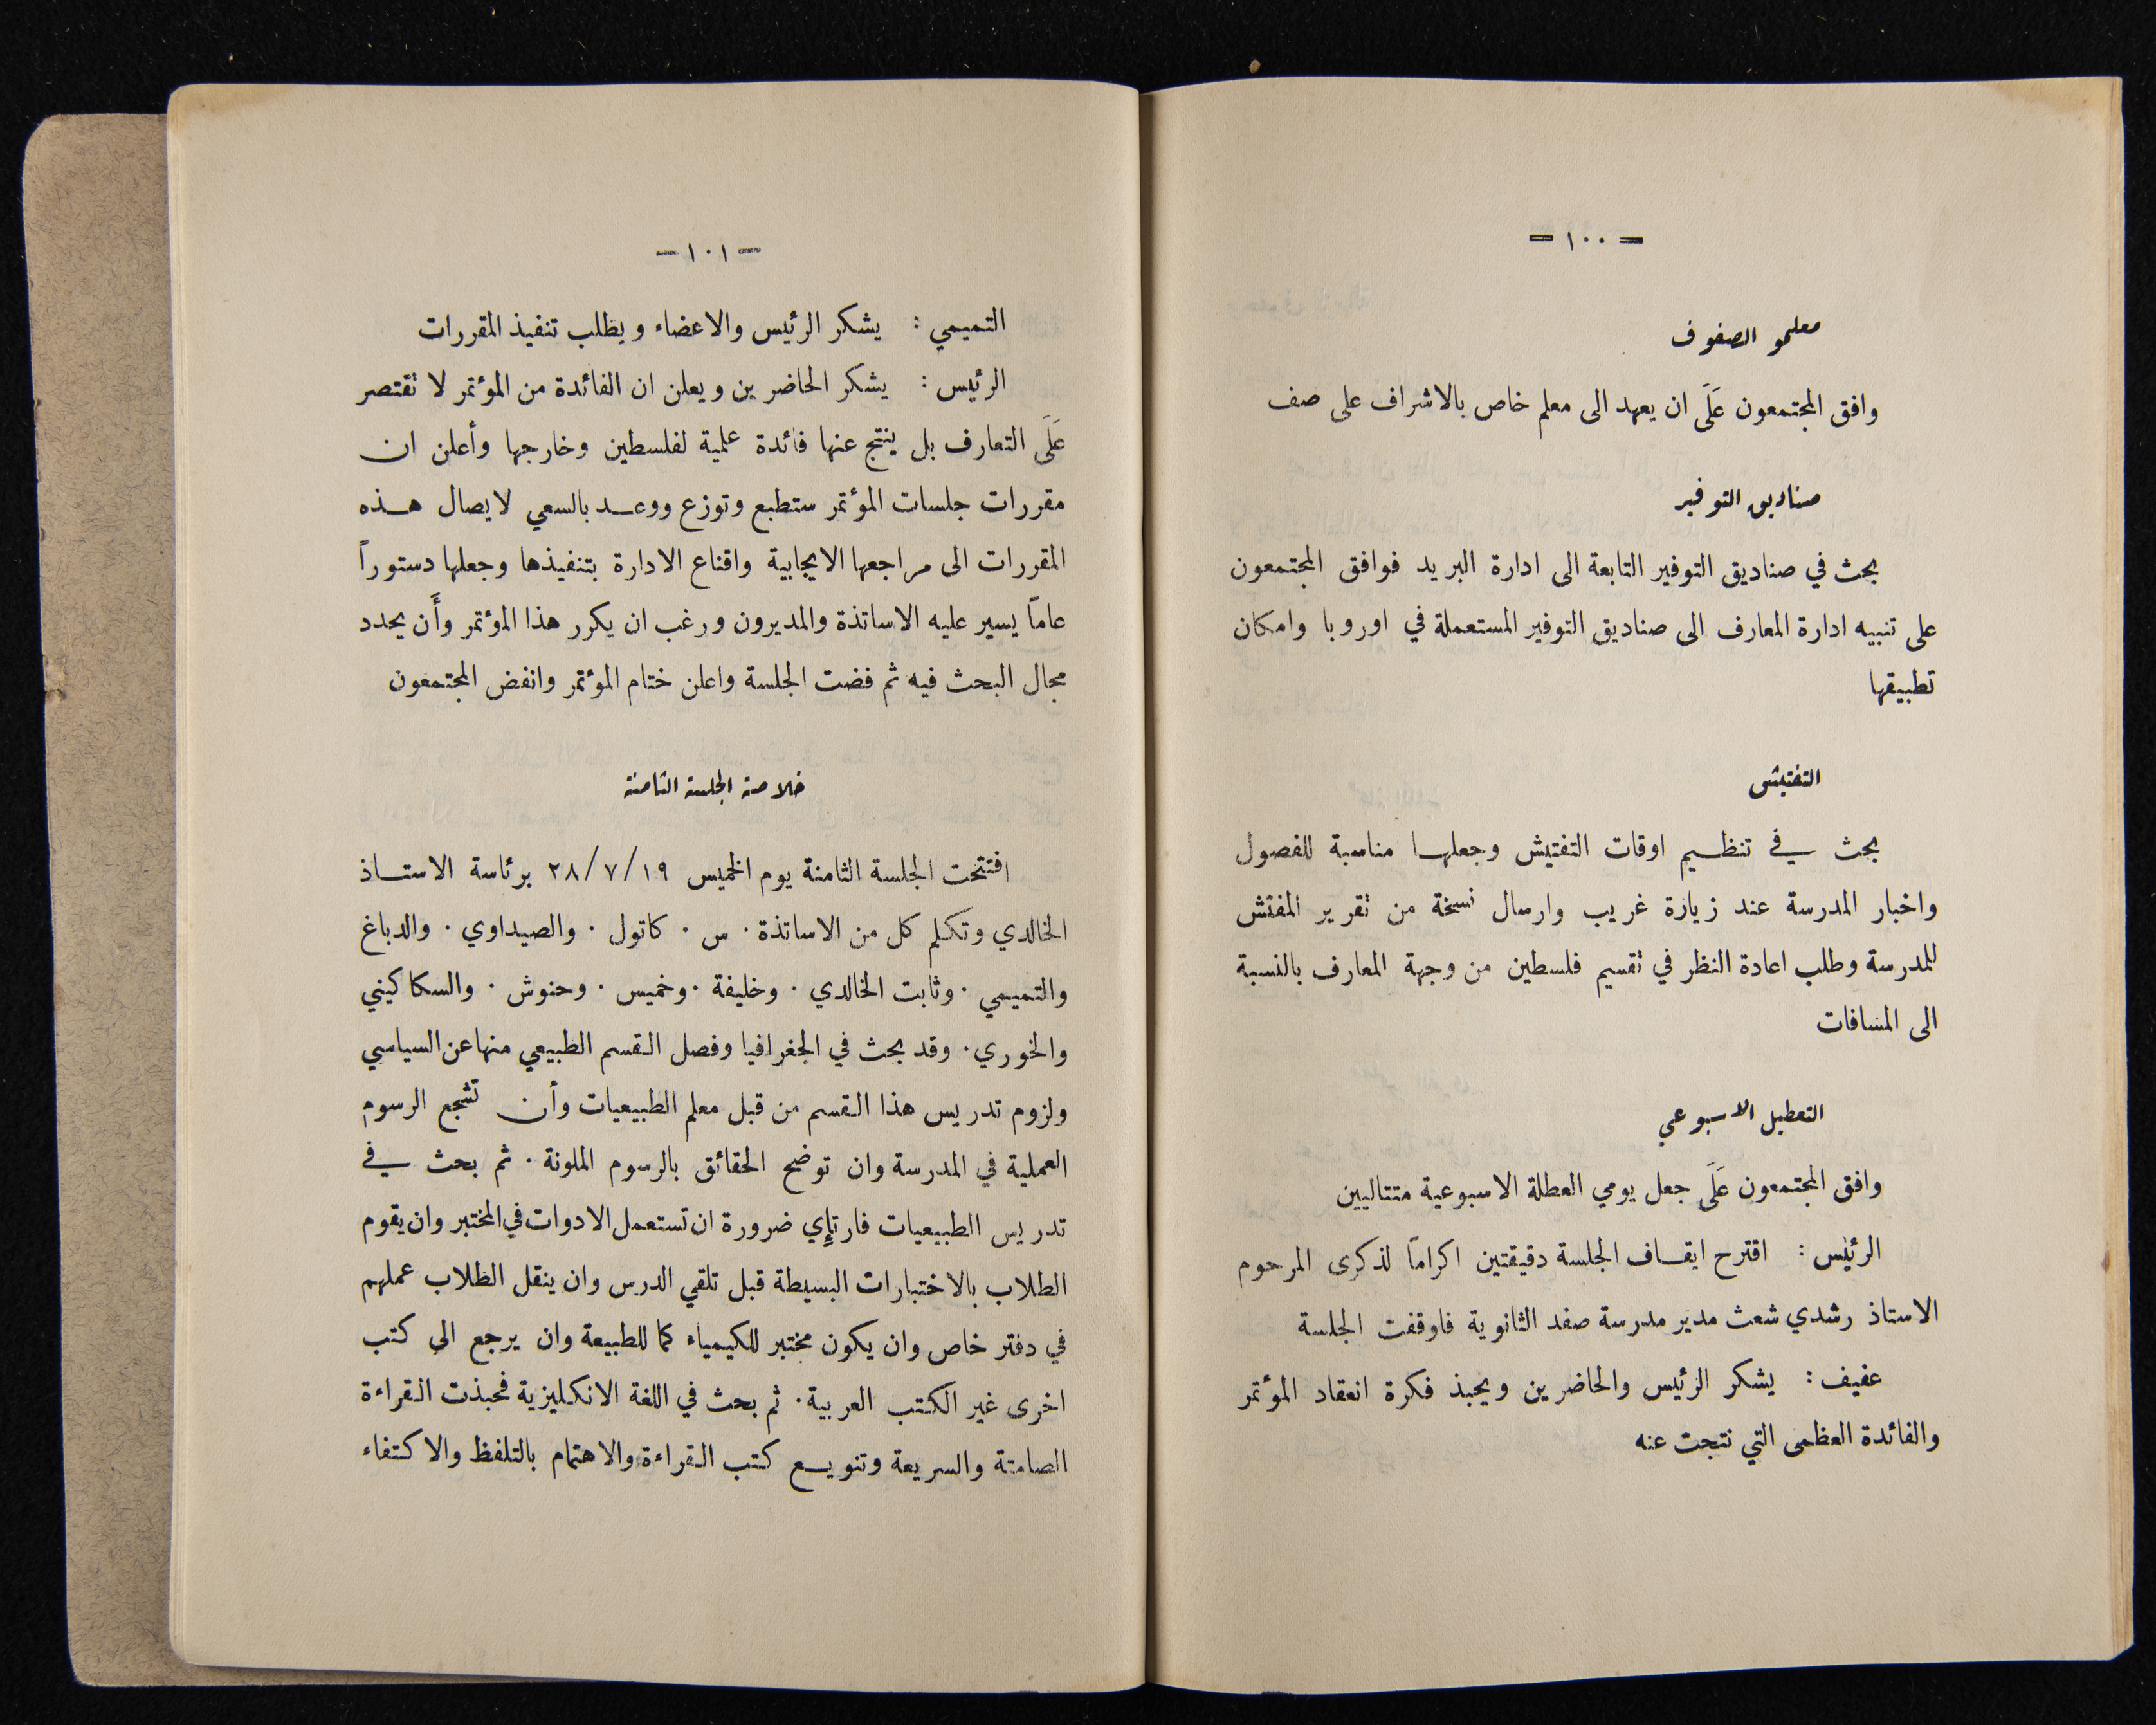 — ١٠٠ —
معلمو الصفوف
وافق المجتمعون عَلَى ان يعهد الى معلم خاص بالاشراف على صف
صناديق التوفير
بحث في صناديق التوفير التابعة الى ادارة البريد فوافق المجتمعون
على تنبيه ادارة المعارف الى صناديق التوفير المستعملة في اوروبا وامكان
تطبيقها
التفتيش
بحث في تنظيم اوقات التفتيش وجعلها مناسبة للفصول
واخبار المدرسة عند زيارة غريب وارسال نسخة من تقرير المفتش
للمدرسة وطلب اعادة النظر في تقسيم فلسطين من وجهة المعارف بالنسبة
الى المسافات
التعطيل الاسبوعي
وافق المجتمعون عَلَى جعل يومي العطلة الاسبوعية متتاليين
الرئيس : اقترح ايقاف الجلسة دقيقتين اكرامًا لذكرى المرحوم
الاستاذ رشدي شعث مدير مدرسة صفد الثانوية فاوقفت الجلسة
عفيف : يشكر الرئيس والحاضرين ويحبذ فكرة انعقاد المؤتمر
والفائدة العظمى التي نتجت عنه
— ١٠١ —
التميمي : يشكر الرئيس والاعضاء ويطلب تنفيذ المقررات
الرئيس : يشكر الحاضرين ويعلن ان الفائدة من المؤتمر لا تقتصر
عَلَى التعارف بل ينتج عنها فائدة علمية لفلسطين وخارجها وأعلن ان
مقررات جلسات المؤتمر ستطبع وتوزع ووعد بالسعي لايصال هذه
المقررات الى مراجعها الايجابية واقناع الادارة بتنفيذها وجعلها دستوراً
عامًا يسير عليه الاساتذة والمديرون ورغب ان يكرر هذا المؤتمر وأَن يحدد
مجال البحث فيه ثم فضت الجلسة واعلن ختام المؤتمر وانفض المجتمعون
خلاصة الجلسة الثامنة
افتتحت الجلسة الثامنة يوم الخميس ٢٨/٧/١٩ برئاسة الاستاذ
الخالدي وتكلم كل من الاساتذة . س . كاتول . والصيداوي . والدباغ
والتميمي . وثابت الخالدي . وخليفة . وخميس . وحنوش . والسكاكيني
والخوري . وقد بحث في الجغرافيا وفصل القسم الطبيعي منها عن السياسي
ولزوم تدريس هذا القسم من قبل معلم الطبيعيات وأن تشجع الرسوم
العملية في المدرسة وان توضح الحقائق بالرسوم الملونة . ثم بحث في
تدريس الطبيعيات فارتإي ضرورة ان تستعمل الادوات في المختبر وان يقوم
الطلاب بالاختبارات البسيطة قبل تلقي الدرس وان ينقل الطلاب عملهم
في دفتر خاص وان يكون مختبر للكيمياء كما للطبيعة وان يرجع الى كتب
اخرى غير الكتب العربية . ثم بحث في اللغة الانكليزية فحبذت القراءة
الصامتة والسريعة وتنويع كتب القراءة والاهتمام بالتلفظ والاكتفاء